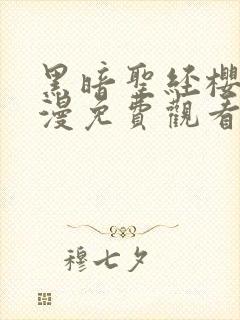 黑暗聖経櫻
漫免費觀看
穆七夕